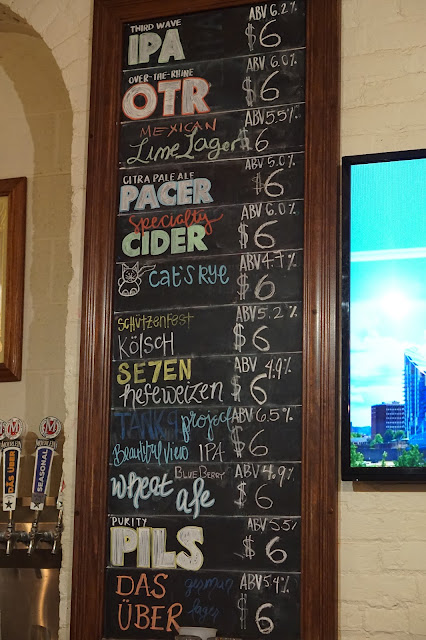 THIRD WAVE
IPA
ABV 6.2%
$6
OVER-THE-RHINE
OTR
ABV 6.0%
$6
MEXICAN
Lime Lager
ABV 5.5%
$6
CITRA PALE ALE
PACER
ABV 5.0%
$6
Specialty
CIDER
ABV 6.0%
$6
cat's RYe
ABV 4.7%
$6
SCHÜTZENFEST
KÖLSCH
ABV 5.2%
$6
SE7EN
hefeweizen
ABV 4.9%
$6
TANK 9 project
Beautiful View IPA
ABV 6.5%
$6
BLUEBERRY
wheat ale
ABV 4.9%
$6
PURITY
PILS
ABV 5.5%
$6
DAS
ÜBER
german
lager
ABV 5.4%
$6
MOERLEIN
DAS ÜBER
MOERLEIN
SEASONAL